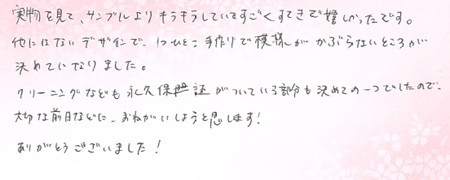 実物を見て、サンプルよりキラキラしていてすごくすてきで嬉しかったです。
他にはないデザインで、1つひとつ手作りで模様がかぶらないところが
決めてになりました。
クリーニングなども永久保証がついている部分も決めての一つでしたので、
大切な前日などに、おねがいしようと思います!
ありがとうございました!